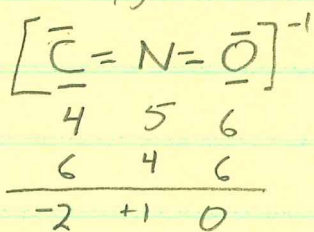 [C = N = O]⁻¹
4 5 6
6 4 6
-2 +1 0